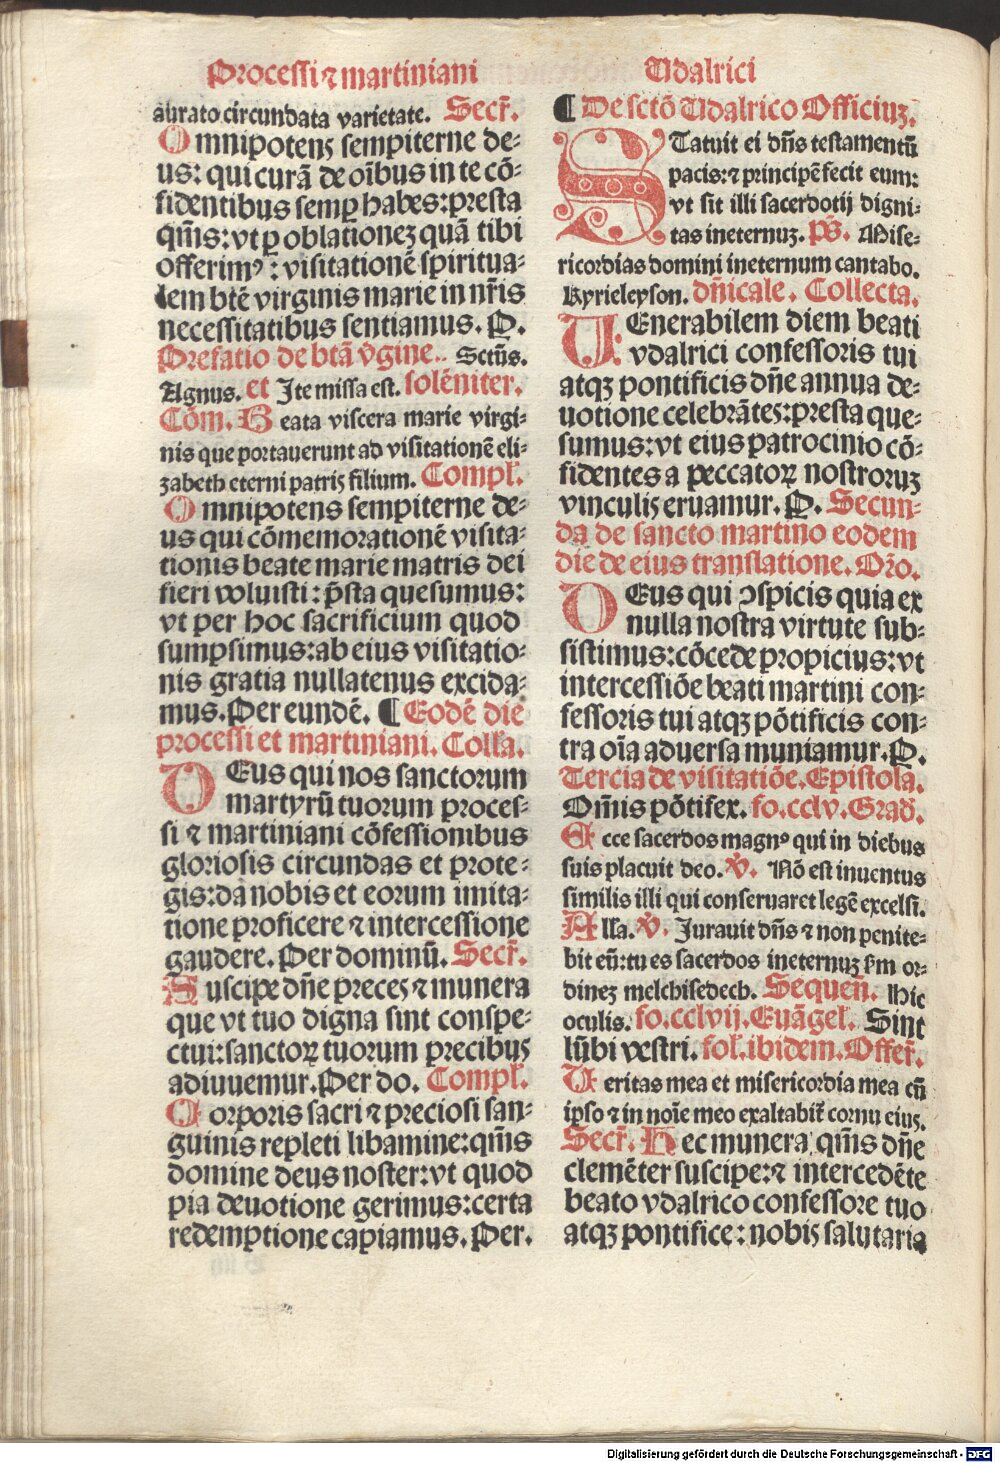 Processi ⁊ martiniani
Udalrici
aurato circundata varietate. Secr̄.
Omnipotens sempiterne de⸗
us: qui curā de oībus in te cō⸗
fidentibus semꝑ habes: p̄resta
qm̄s: vt ꝑ oblationeꝫ quā tibi
offerimꝰ: visitationē spiritua⸗
lem btē virginis marie in nr̄is
necessitatibus sentiamus. P.
Prefatio de btā v̄gine. Sctūs.
Agnus. et Ite missa est. solēniter.
Cōm. Beata viscera marie virgi⸗
nis que portauerunt ad visitationē eli⸗
zabeth eterni patris filium. Compl̄.
Omnipotens sempiterne de⸗
us qui cōmemorationē visita⸗
tionis beate marie matris dei
fieri voluisti: p̄sta quesumus:
vt per hoc sacrificium quod
sumpsimus: ab eius visitatio⸗
nis gratia nullatenus excida⸗
mus. Per eundē. ¶ Eodē die
processi et martiniani. Coll̄a.
DEus qui nos sanctorum
martyrū tuorum proces⸗
si ⁊ martiniani cōfessionibus
gloriosis circundas et prote⸗
gis: da nobis et eorum imita⸗
tione proficere ⁊ intercessione
gaudere. Per dominū. Secr̄.
Suscipe dn̄e preces ⁊ munera
que vt tuo digna sint conspe⸗
ctui: sanctoꝝ tuorum precibus
adiuuemur. Per do. Compl̄.
Corporis sacri ⁊ preciosi san⸗
guinis repleti libamine: qm̄s
domine deus noster: vt quod
pia deuotione gerimus: certa
redemptione capiamus. Per.
¶ De sctō Udalrico Officiuꝫ.
STatuit ei dn̄s testamentū
pacis: ⁊ principē fecit eum:
vt sit illi sacerdotij digni⸗
tas ineternuꝫ. Ps̄. Mise⸗
ricordias domini ineternum cantabo.
Kyrieleyson. dn̄icale. Collecta.
UEnerabilem diem beati
vdalrici confessoris tui
atqꝫ pontificis dn̄e annua de⸗
uotione celebrātes: presta que⸗
sumus: vt eius patrocinio cō⸗
fidentes a peccatoꝝ nostroruꝫ
vinculis eruamur. P. Secun⸗
da de sancto martino eodem
die de eius translatione. Or̄o.
DEus qui ↄspicis quia ex
nulla nostra virtute sub⸗
sistimus: cōcede propicius: vt
intercessiōe beati martini con⸗
fessoris tui atqꝫ pōtificis con⸗
tra oīa aduersa muniamur. P.
Tercia de visitatiōe. Epistola.
Om̄is pōtifex. fo. cclv. Grad̄.
Ecce sacerdos magnꝰ qui in diebus
suis placuit deo. V̄. Nō est inuentus
similis illi qui conseruaret legē excelsi.
Alla. V̄. Jurauit dn̄s ⁊ non penite⸗
bit eū: tu es sacerdos ineternuꝫ sm̄ or⸗
dineꝫ melchisedech. Sequen̄. Hic
oculis. fo. cclvij. Euāgel̄. Sint
lūbi vestri. fol. ibidem. Offer̄.
Ueritas mea et misericordia mea cū
ipso ⁊ in noīe meo exaltabit̄ cornu eius.
Secr̄. Hec munera qm̄s dn̄e
clemēter suscipe: ⁊ intercedēte
beato vdalrico confessore tuo
atqꝫ pontifice: nobis salutaria
Digitalisierung gefördert durch die Deutsche Forschungsgemeinschaft - DFG